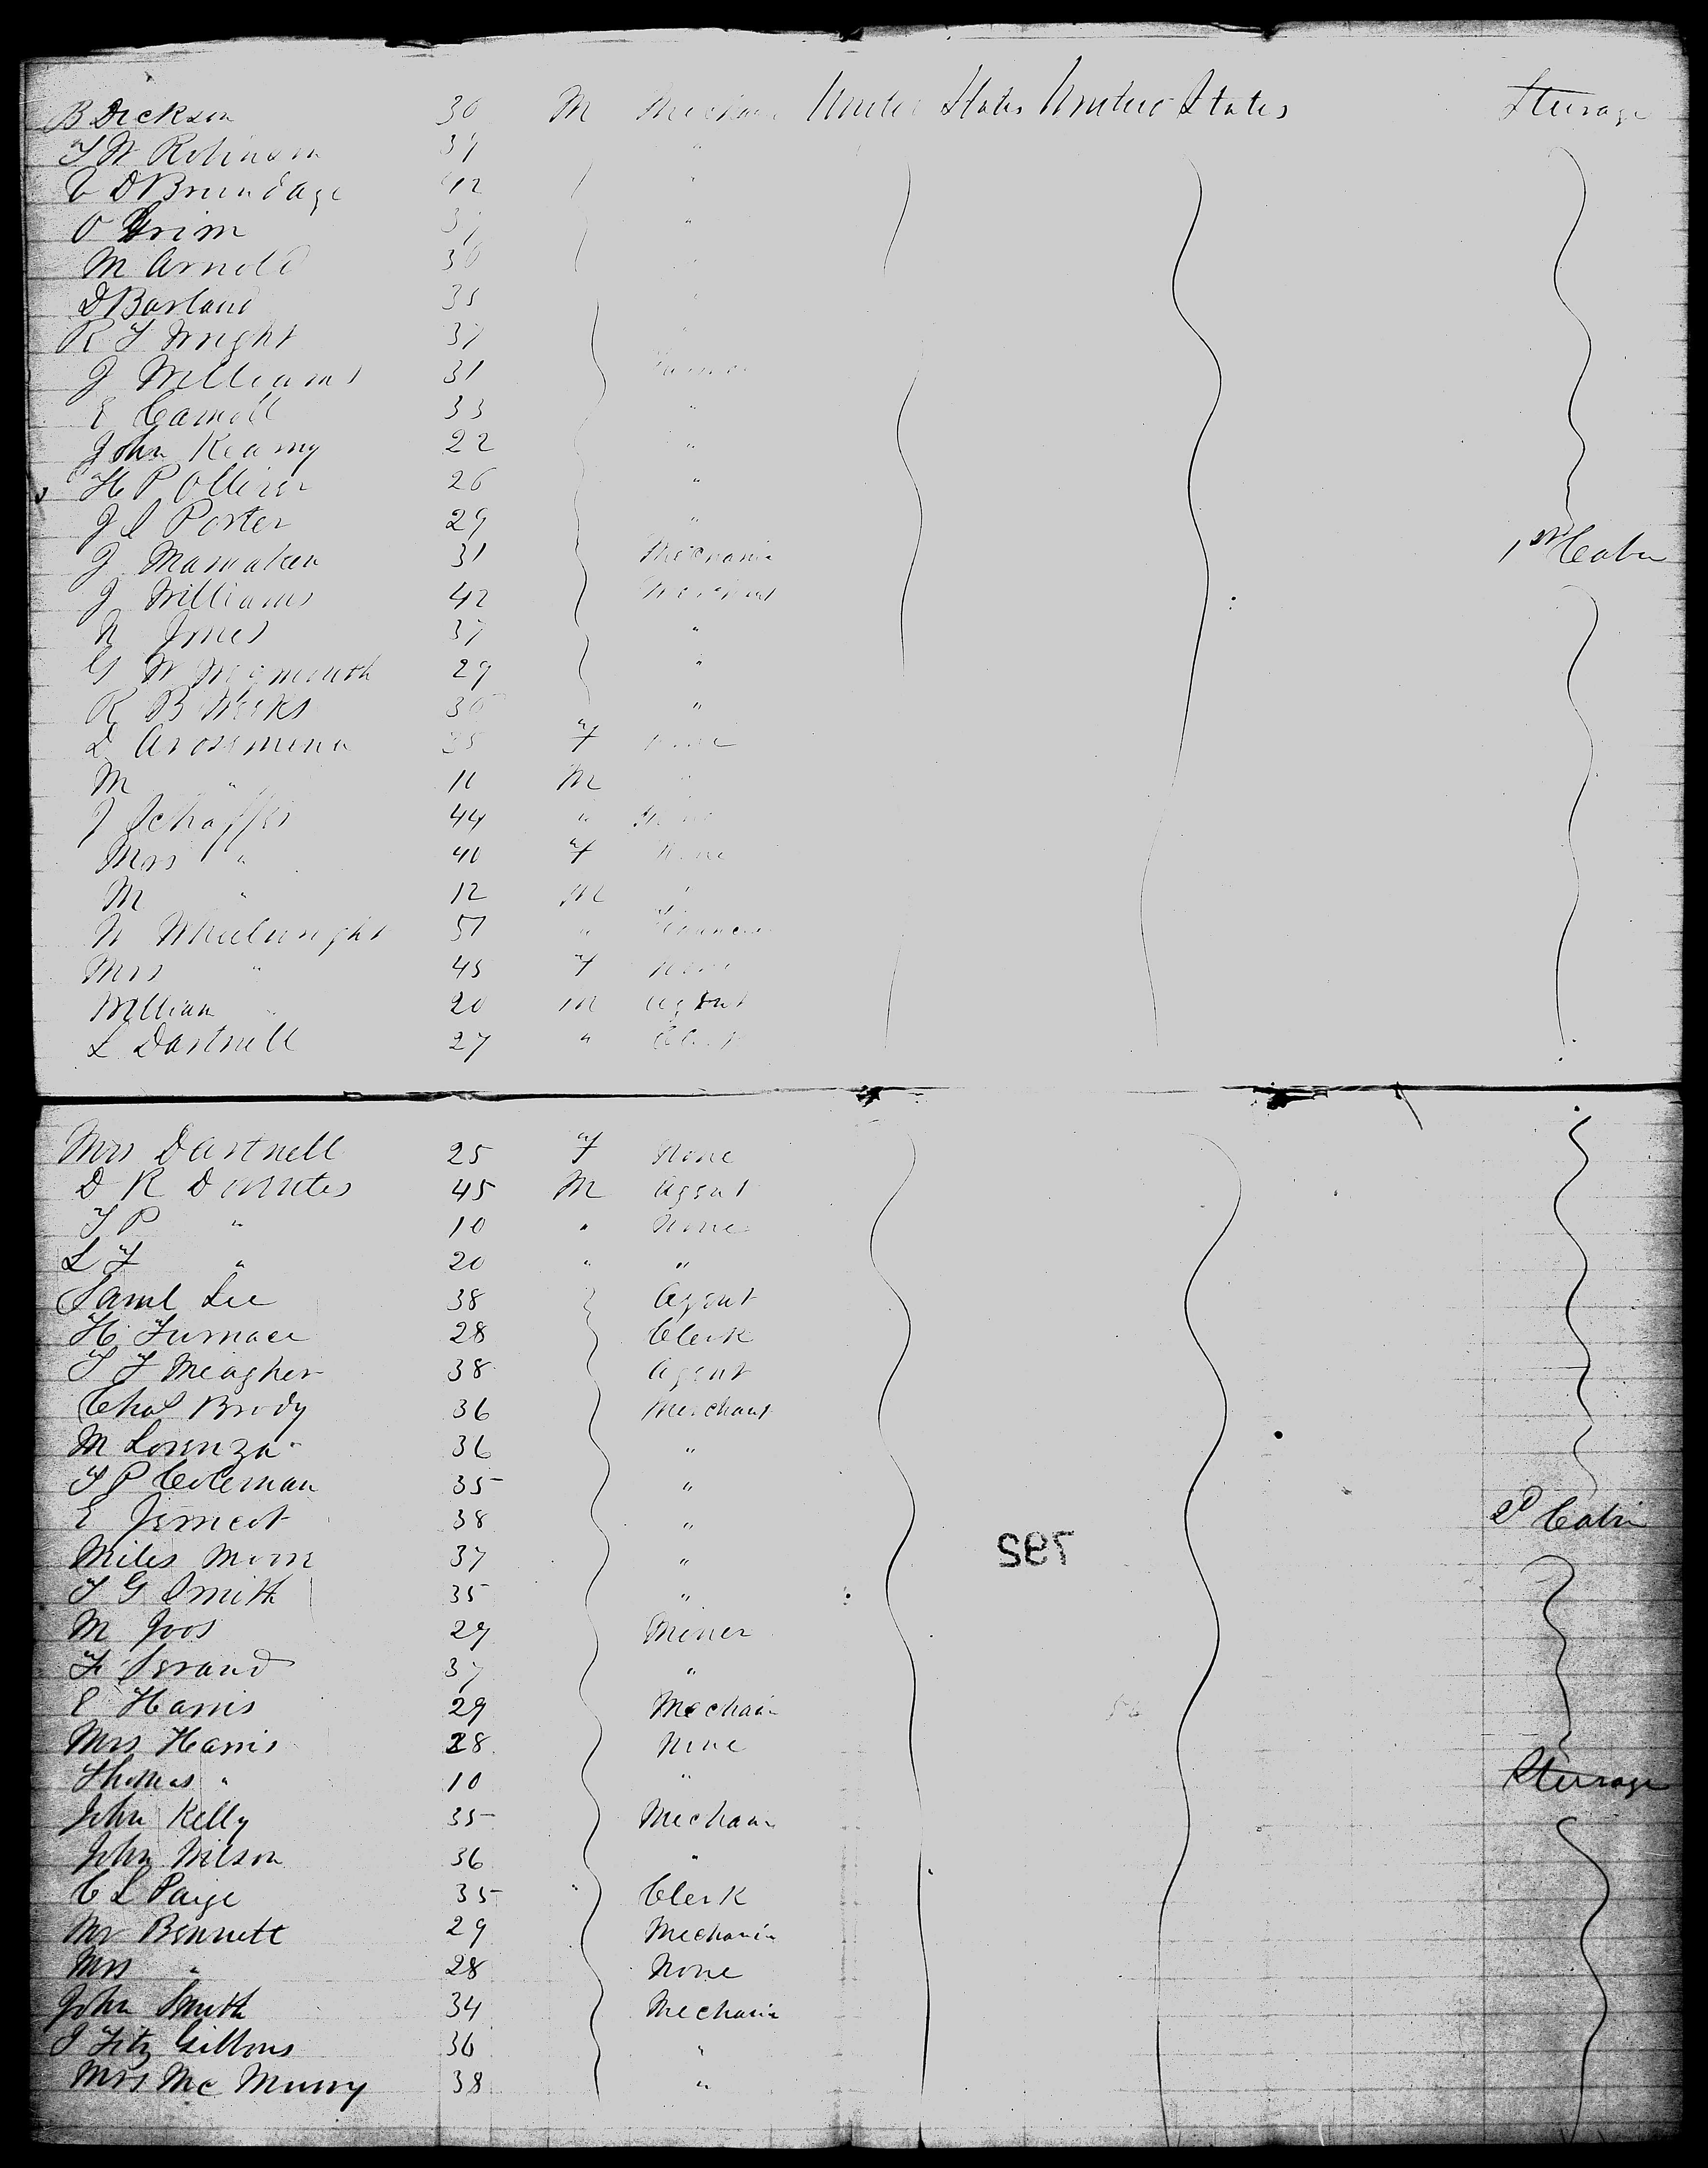 B Dickson 30 M Mechanic United States United States Steerage
T W Robinson "
D Brundage 42 "
O Grim "
M Arnold 30
D Barland 35
R T Wright 37
J Williams 31 Farmer
E Carroll 33 "
John Kearny 22 "
H P Olliver 26 "
J S Porter 29 "
J 31 Mechanic 1st Cabin
J Williams 42 Merchant
N Jones 37 "
G W Weymouth 29 "
R B Weeks "
D Arosemena 35 F None
M " M "
J Schaffer 44 "
Mrs " 40 F None
M " 12 M "
W Wheelwright 51 "
Mrs " 45 F None
William " 20 M Agent
L Dartnell 27 " Clerk
Mrs Dartnell 25 F None
D R 45 M Agent
T P " 10 " None
L F " 20 " "
Saml Lee 38 Agent
H Furnace 28 Clerk
T F Meagher 38 Agent
Chas Brody 36 Merchant
M Lorenza 36 "
T P Coleman 35 "
E 38 " 2d Cabin
Miles 37 "
T G Smith 35 "
M Joos 29 Miner
F 37 "
E Harris 29 Mechanic
Mrs Harris 28 None
Thomas " 10 " Steerage
John Kelly 35 Mechanic
John Wilson 36 "
C L Paige 35 " Clerk
Mr Bennett 29 Mechanic
Mrs " 28 None
John Smith 34 Mechanic
J Fitz Gibbons 36 "
Mrs Mc Murry 38 "
792